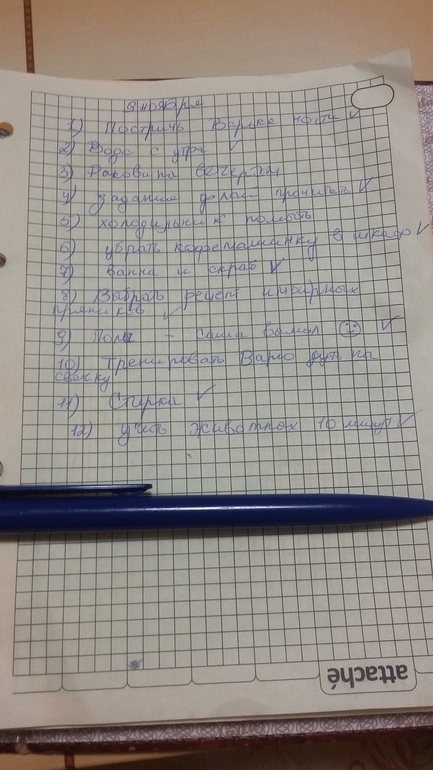 8 ноября
1) Постричь Варьке ногти ✓
2) Вода с утра ✓
3) Раковина вечером
4) задание прочитать ✓
5) холодильник помыть
6) убрать кофемашинку в шкаф ✓
7) ванна и скраб ✓
8) Выбрать рецепт имбирных
пряников ✓
9) Полы - Саша вымыл ☺ ✓
10) Тренировать Варю дуть на
свечку
11) Стирка ✓
12) учить животных 10 минут ✓
attaché